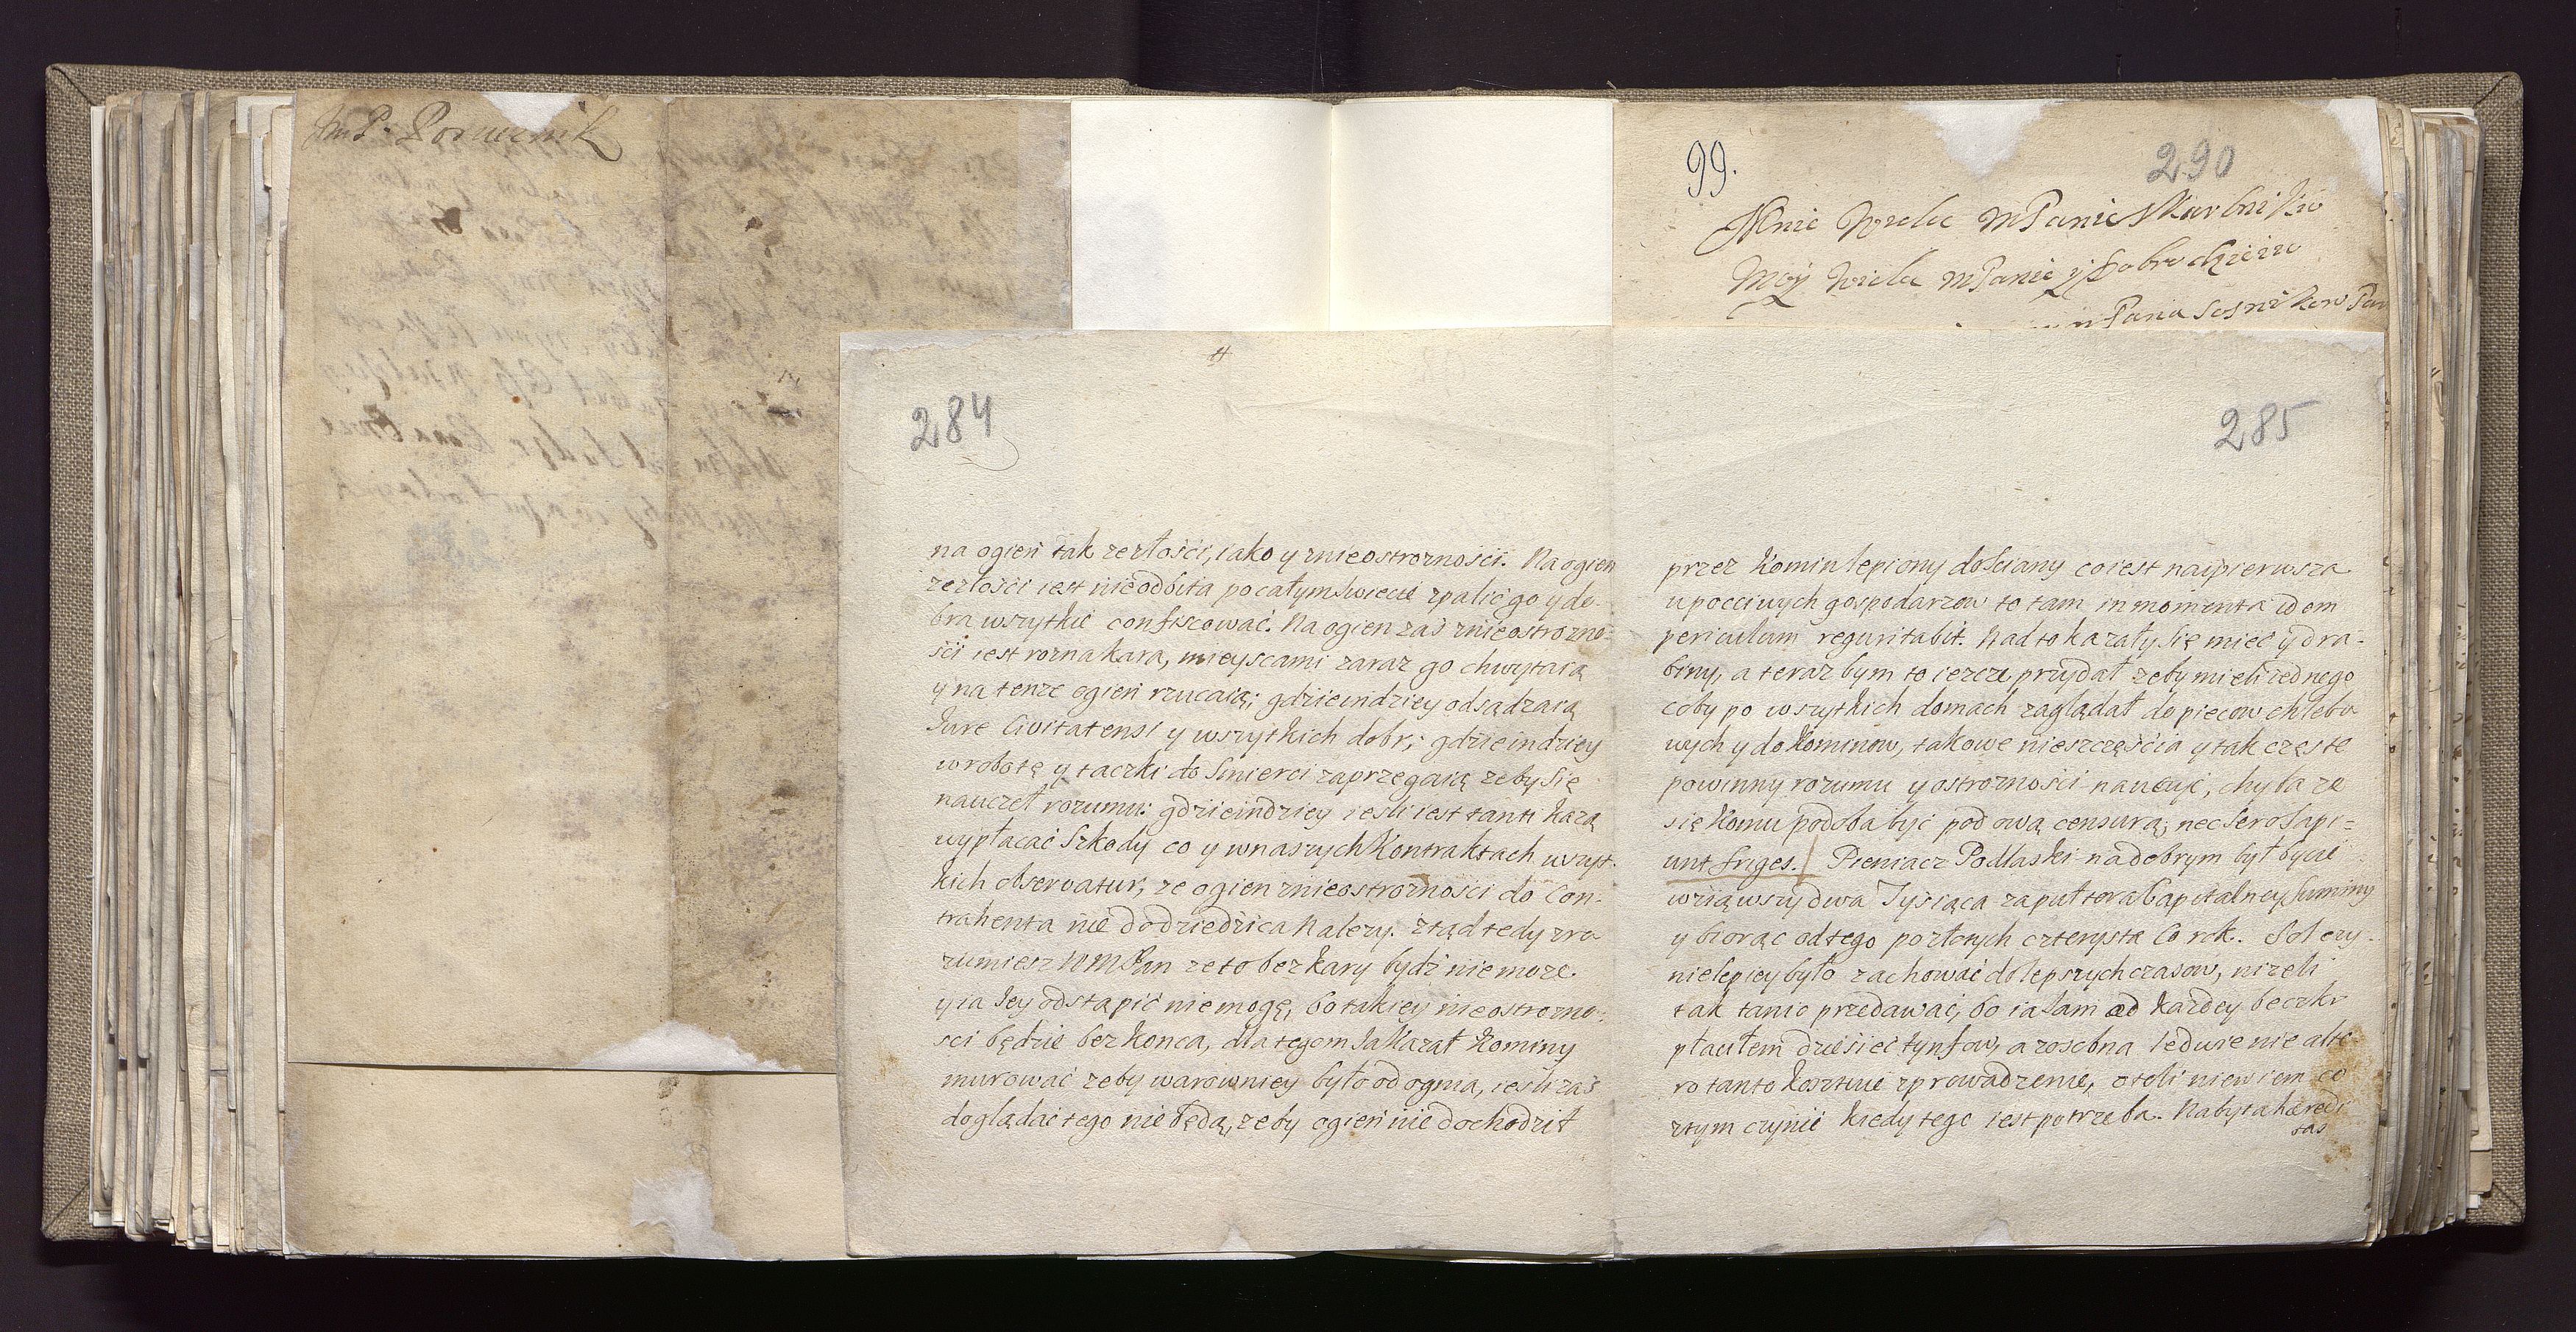 JmP. Porucznik
99.
290
Mnie Wielce MPanie Skarbniku
Moy Wielce MPanie y Dobrodzieiu
284
na ogień tak zezłości, iako y znieostrozności. Na ogien
zezłości iest nieodbita po całym Swiecie zpalić go y do-
bra wszytkie confiscować. Na ogien zaś znieostrozno-
ści iest rozna kara, mieyscami zaraz go chwytaią
y na tenze ogień rzucaią; gdzieindziey odsądzaią
Jure Civitatensi y wszytkich dobr; gdzieindziey
w robotę y taczki do Smierci zaprzęgaią zeby Się
nauczeł rozumu: gdzieindziey iesli iest tanti kazą
wypłacać Szkody co y wnaszych Kontraktach wszyt-
kich observatur, ze ogien znieostrozności do Con-
trahenta nie do dziedzica nalezy. ztąd tedy zro
zumiesz WMPan ze to bez kary bydź nie moze.
y ia Jey odstąpić niemogę, bo takiey nieostrozno-
sci będzie bez konca, dla tegom Ja kazał Kominy
murować zeby warowniey było od ognia, iesli zaś
doglądać tego nie będą, zeby ogień nie dochodził
285
przez Komin lepiony do Sciany co iest naipierwsza
u pocciwych gospodarzow to tam in momenta idem
periculum reguritabit. Nad to kazały Się mieć y dra-
biny, a teraz bym to iezcze przydał zeby mieli iednego
coby po wszytkich domach zaglądał do piecow chlebo
wych y do Kominow, takowe nieszczęścia y tak częste
powinny rozumu y ostrozności nauczyć, chyba ze
się Komu podoba być pod ową censurą; nec Sero Sapi=
unt friges. Pieniacz Podlaski na dobrym był bycie
wziąwszy dwa Tysiąca zapułtora Capitalney Summy
y biorąc od tego po złotych czterysta Co rok. Sol czy
nie lepiey było zachować do lepszych czasow, nizeli
tak tanio przedawać, bo ia Sam od kazdey beczki
płaciłem dziesieć tynfow, a zosobna ledwie nie alte-
ro tanto kosztuie zprowadzenie, oteli niewiem co
ztym czynić kiedy tego iest potrzeba. Nabyta haeredi
tas